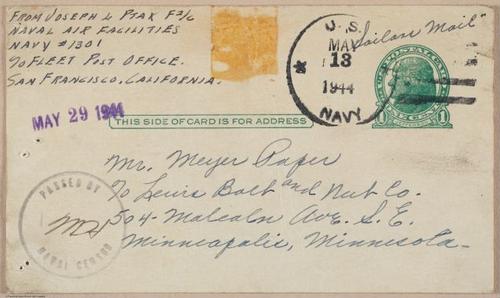 FROM JOSEPH L PTAK F 3/c
NAVAL AIR FACILITIES
NAVY #1301
c/o FLEET POST OFFICE.
SAN FRANCISCO, CALIFORNIA.
U. S.
MAY
13
1944
NAVY
"Sailors Mail"
POSTAGE
1 CENT 1
MAY 29 1944
THIS SIDE OF CARD IS FOR ADDRESS
Mr. Meyer Paper
c/o Lewis Bolt and Nut Co.
504 - Malcolm Ave. S. E.
Minneapolis, Minnesota -
PASSED BY
NAVAL CENSOR